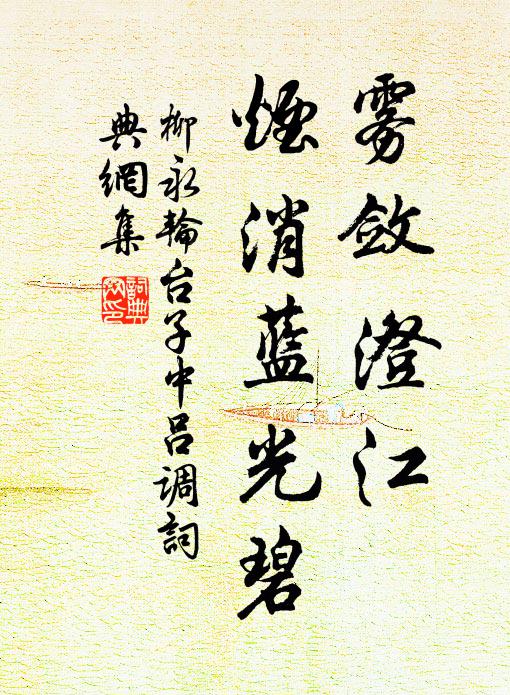 雾敛澄江
烟消蓝光碧
柳永轮台子中吕调词
典網集
詞典網印